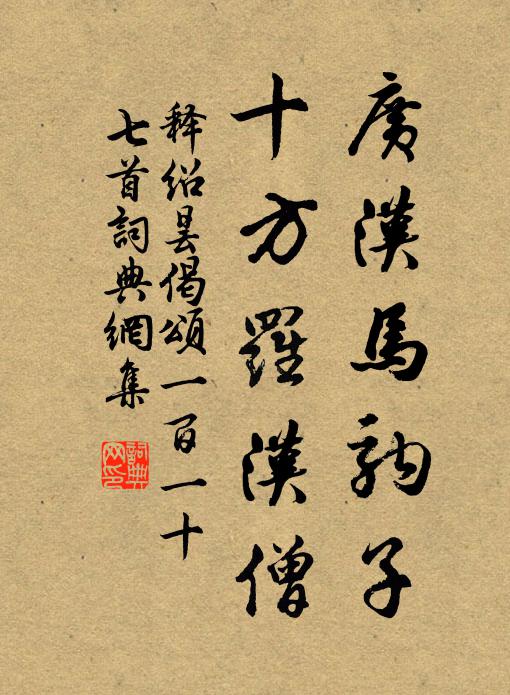 廣漢馬駒子
十方羅漢僧
释绍昙偈頌一百一十
七首詞典網集
詞典
网印